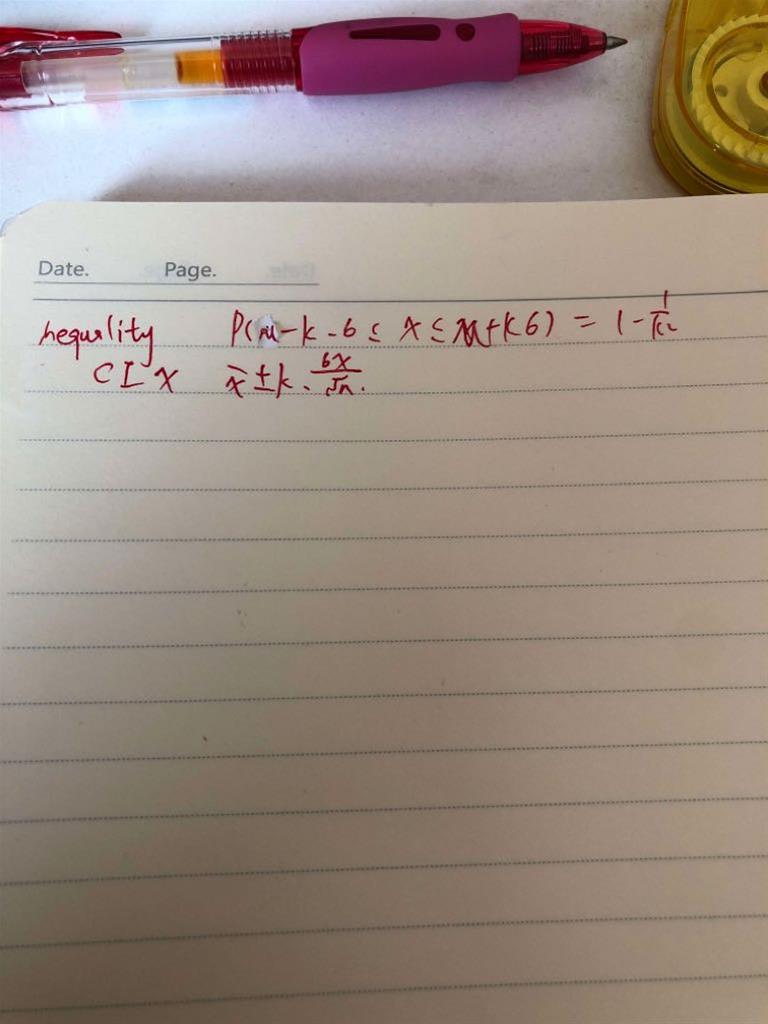 Date. Page.
nequality P(μ-k·σ ≤ x ≤ μ+kσ) = 1-1/k²
CI x x̄ ± k · σx/√n.